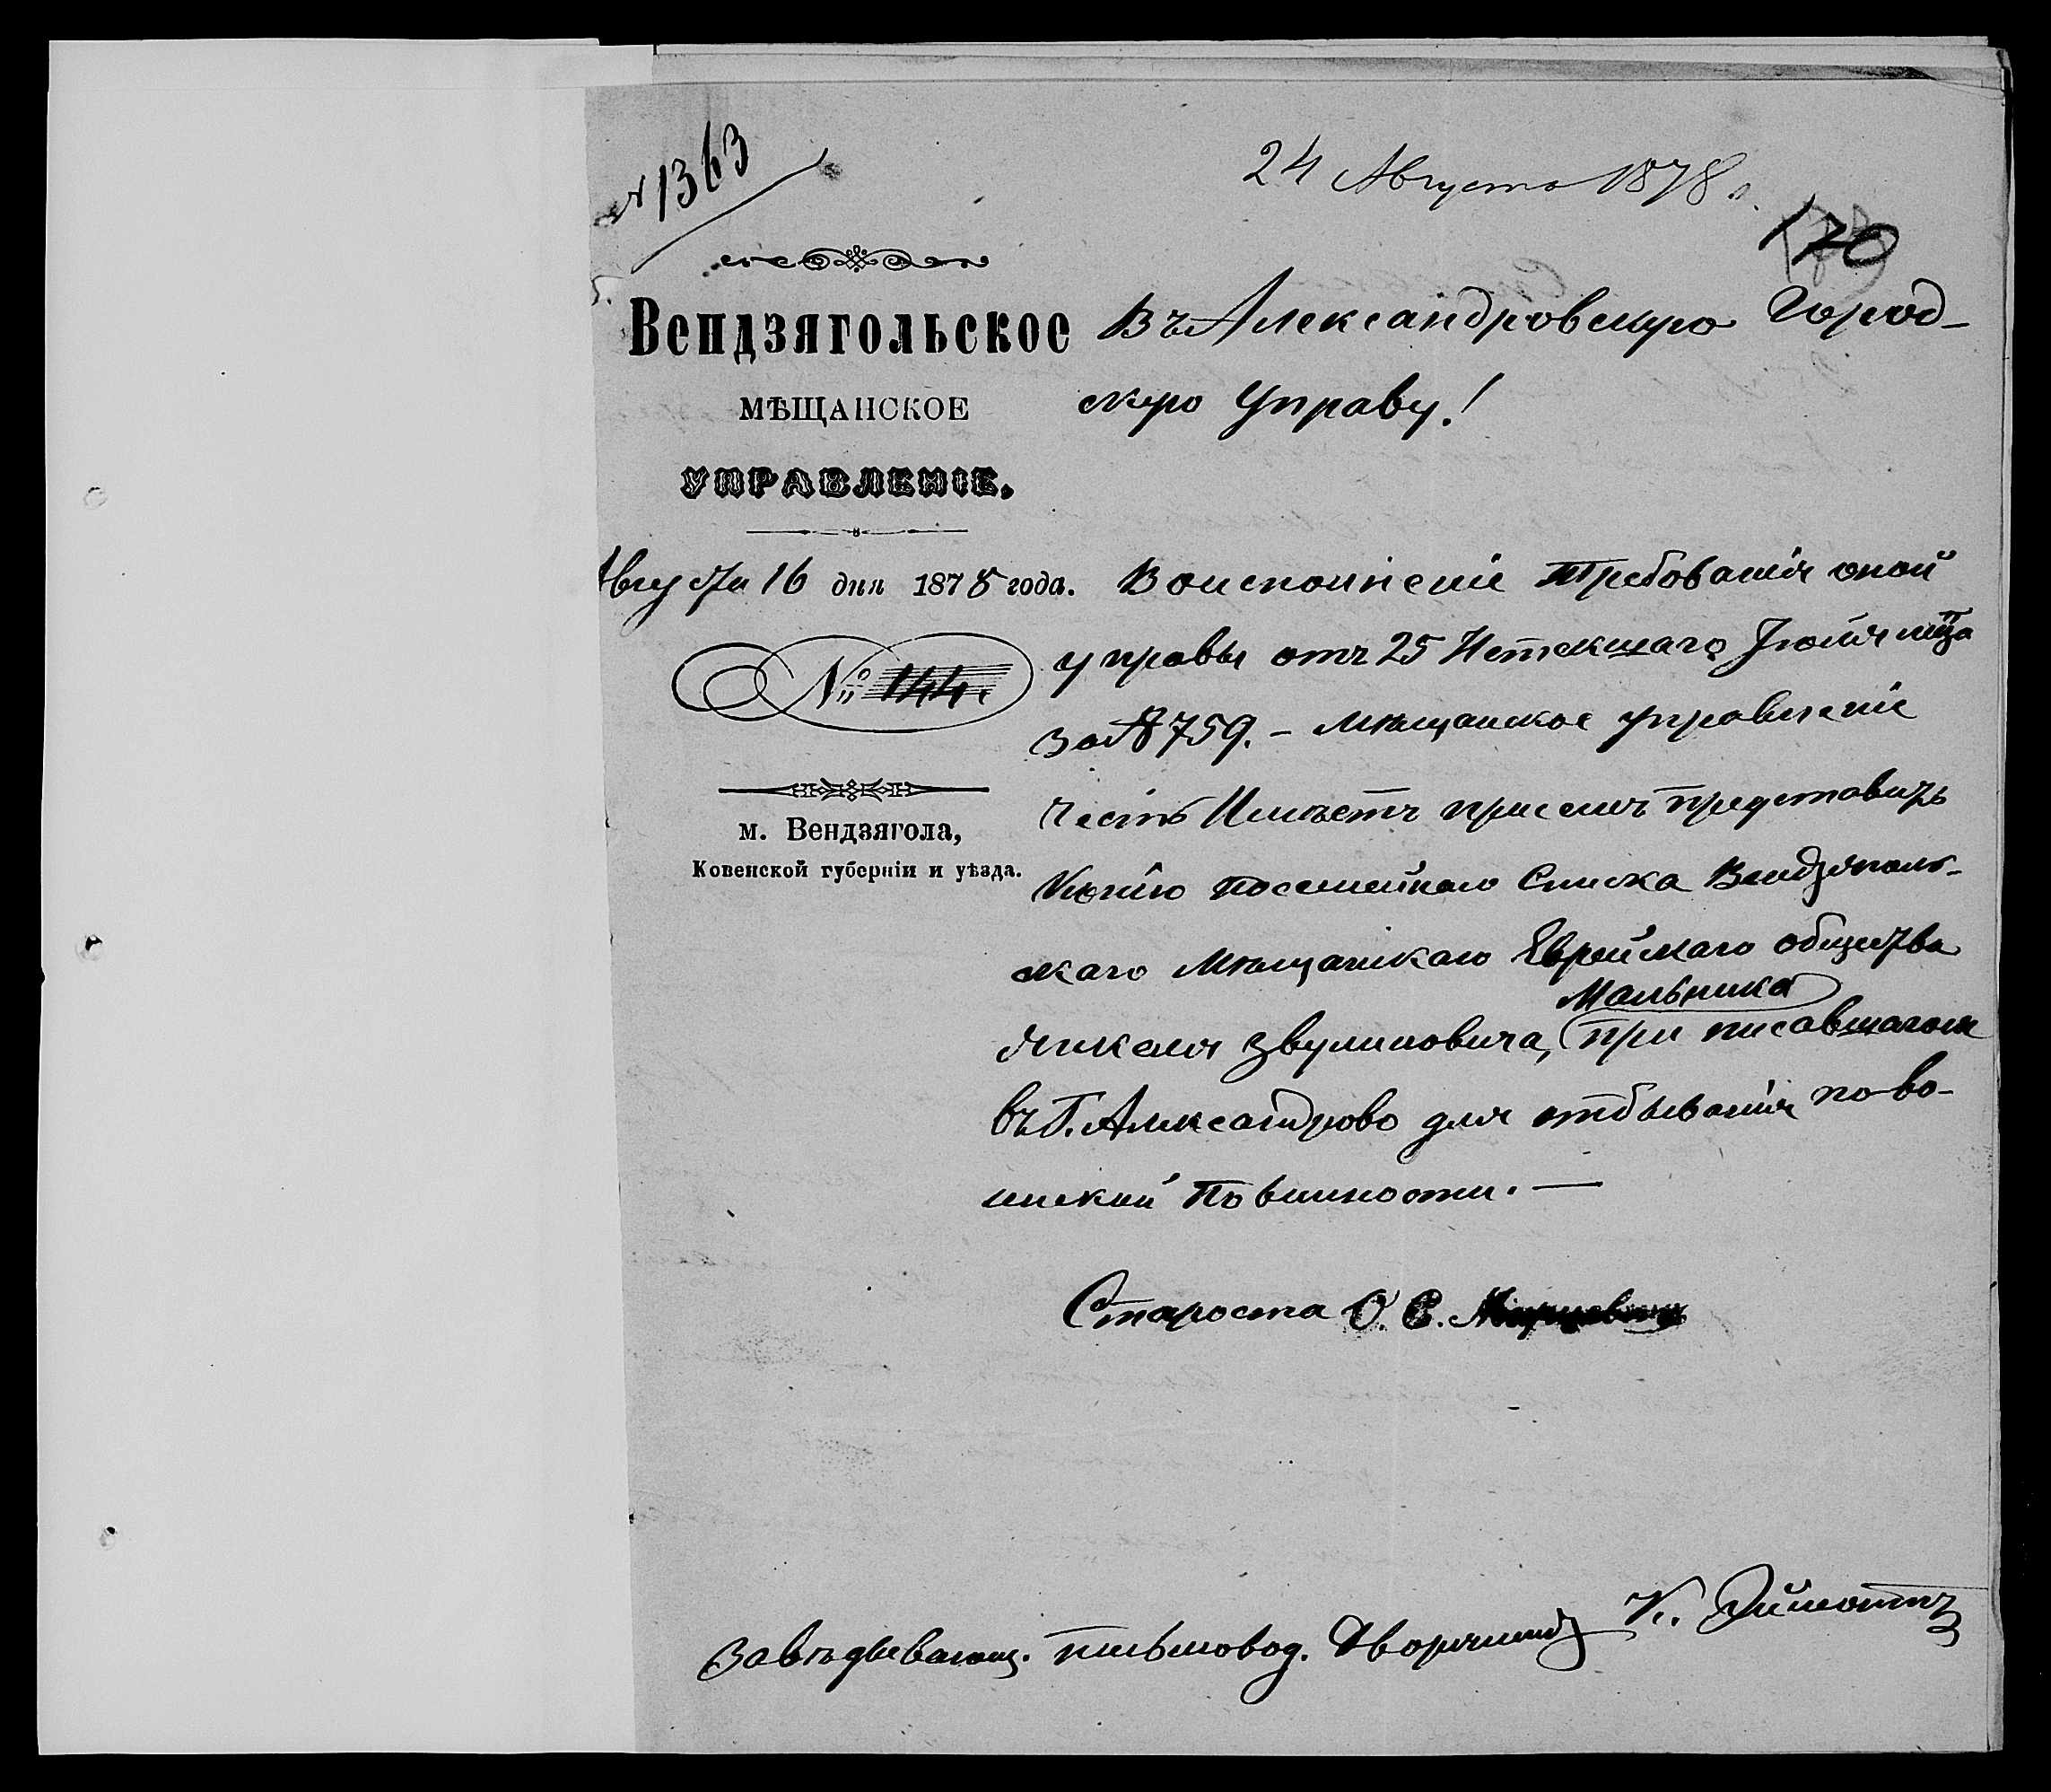 № 1363
24 Августа 1878 г.
170
Вендзягольское
МѢЩАНСКОЕ
УПРАВЛЕНІЕ.
Августа 16 дня 1878 года.
№ 144.
м. Вендзягола,
Ковенской губерніи и уѣзда.
Въ Александровскую Город-
скую Управу!
Во исполненіе Требованія оной
управы отъ 25 Истекшаго Іюля мца
за № 759. – Мѣщанское управленіе
честь Имѣетъ при семъ представить
Копію посемейнаго Списка Вендзяголь-
скаго Мѣщанскаго Еврейскаго общества
Мальника
Янкеля Звулиновича, при писавшагося
въ Г. Александрово для отбыванія по во-
инской Повинности. —
Староста О. С.
Завѣдывающ. письмовод. Дворянинъ К.